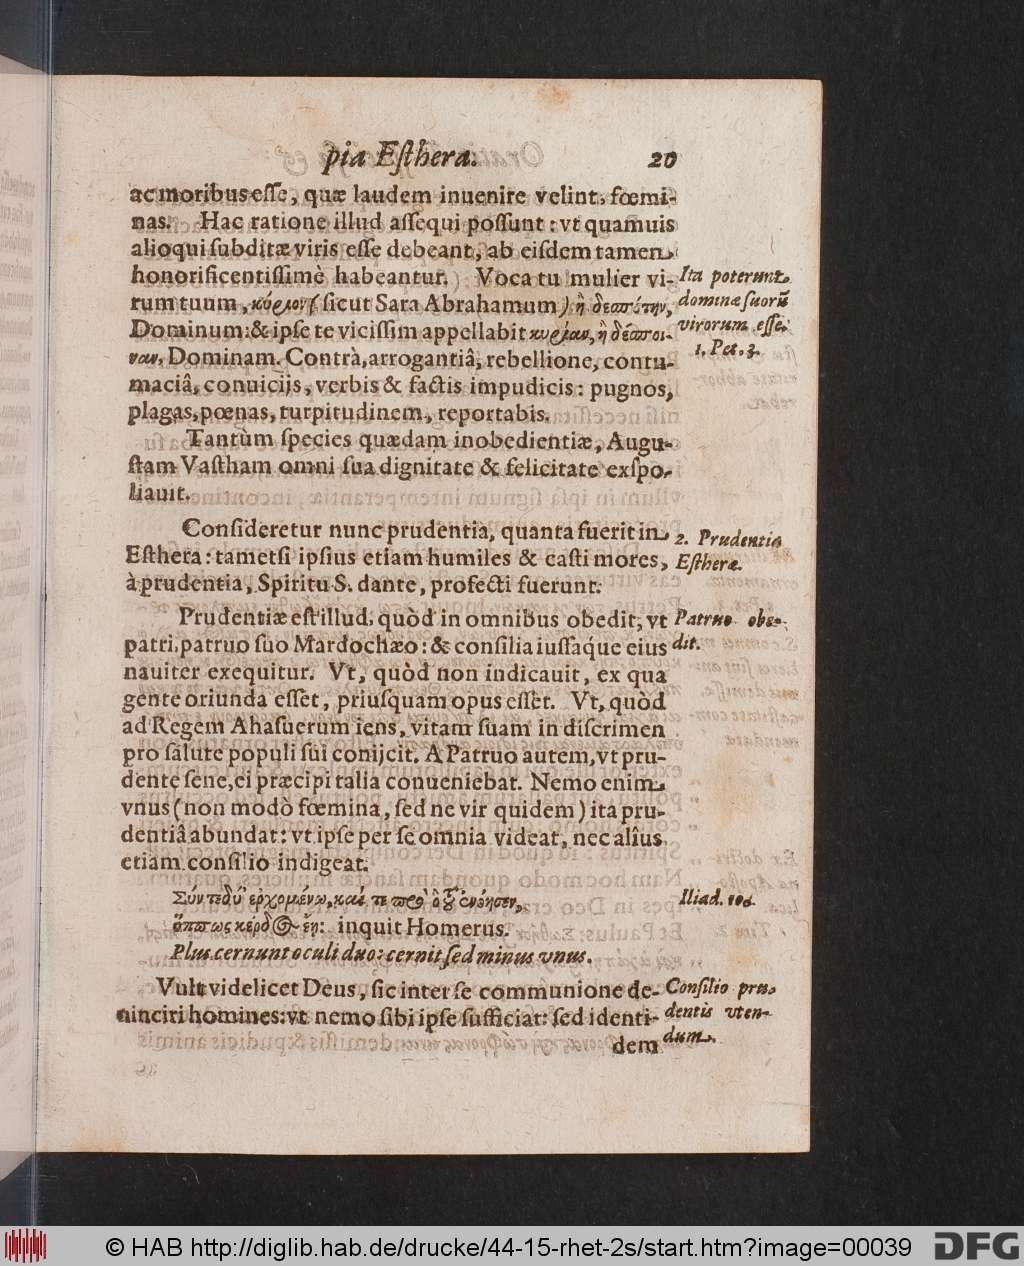 pia Eſthera. 20
ac moribus eſſe, quæ laudem inuenire velint, fœmi-
nas. Hac ratione illud aſſequi poſſunt: vt quamuis
alioqui ſubditæ viris eſſe debeant, ab eiſdem tamen
honorificentiſſimè habeantur. Voca tu mulier vi-
rum tuum, κύριον (ſicut Sara Abrahamum) ἢ δεσπότην,
Dominum: & ipſe te viciſſim appellabit κυρίαν, ἢ δέσποι-
ναν, Dominam. Contrà, arrogantiâ, rebellione, contu-
maciâ, conuicijs, verbis & factis impudicis: pugnos,
plagas, pœnas, turpitudinem, reportabis.
Ita poterunt
dominæ ſuorũ
virorum eſſe.
1. Pet. 3.
Tantùm ſpecies quædam inobedientiæ, Augu-
ſtam Vaſtham omni ſua dignitate & felicitate exſpo-
liauit.
Conſideretur nunc prudentia, quanta fuerit in
Eſthera: tametſi ipſius etiam humiles & caſti mores,
à prudentia, Spiritu S. dante, profecti fuerunt.
2. Prudentia
Eſtheræ.
Prudentiæ eſt illud, quòd in omnibus obedit, vt
patri, patruo ſuo Mardochæo: & conſilia iuſſáque eius
nauiter exequitur. Vt, quòd non indicauit, ex qua
gente oriunda eſſet, priuſquam opus eſſet. Vt, quòd
ad Regem Ahaſuerum iens, vitam ſuam in diſcrimen
pro ſalute populi ſui conijcit. A Patruo autem, vt pru-
dente ſene, ei præcipi talia conueniebat. Nemo enim
vnus (non modò fœmina, ſed ne vir quidem) ita pru-
dentiâ abundat: vt ipſe per ſe omnia videat, nec alîus
etiam conſilio indigeat.
Patruo obe-
dit.
Σύν τε δύ' ἐρχομένω, καί τε πρὸ ὃ τοῦ ἐνόησεν,
ὅππως κέρδος ἔῃ: inquit Homerus.
Plus cernunt oculi duo: cernit ſed minus vnus.
Iliad. 10.
Vult videlicet Deus, ſic inter ſe communione de-
uinciri homines: vt nemo ſibi ipſe ſufficiat: ſed identi-
dem
Conſilio pru-
dentis vten-
dum.
© HAB http://diglib.hab.de/drucke/44-15-rhet-2s/start.htm?image=00039 DFG